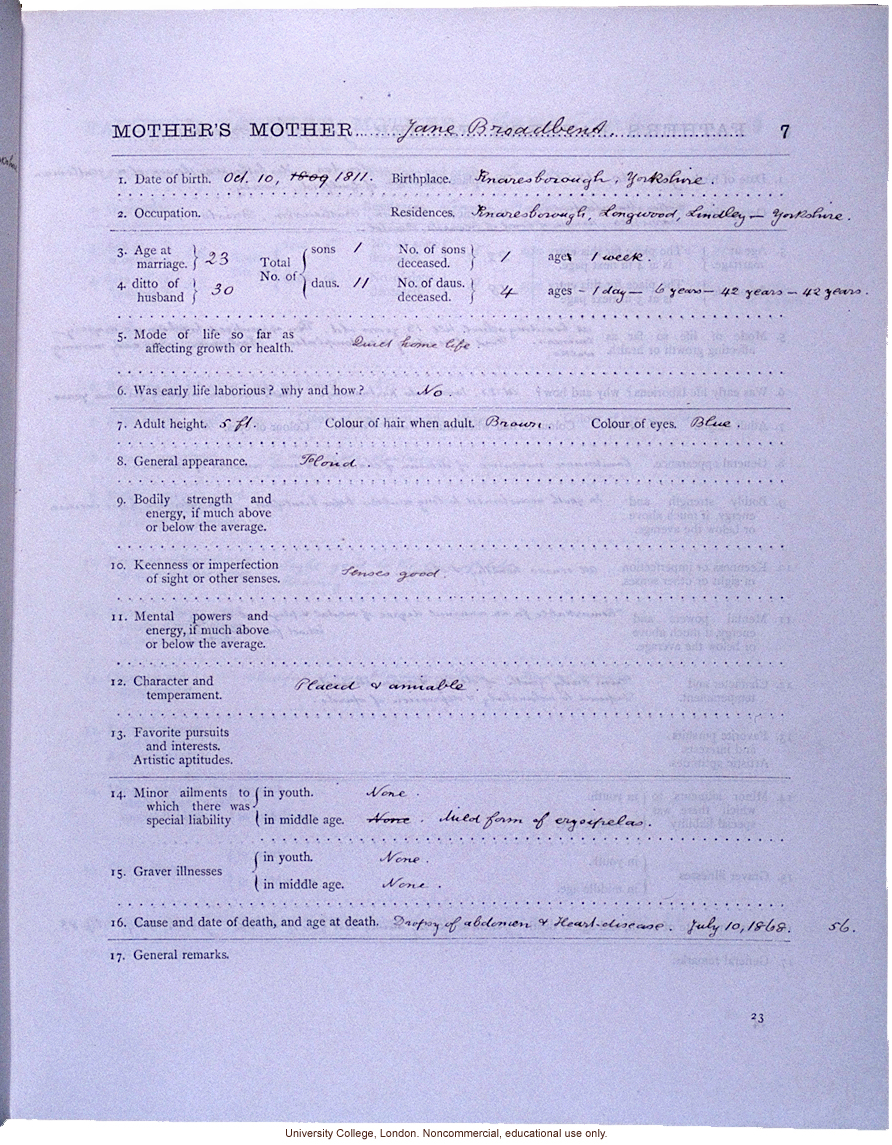 MOTHER'S MOTHER Jane Broadbent. 7
1. Date of birth. Oct. 10, 1809 1811. Birthplace. Knaresborough, Yorkshire.
2. Occupation. Residences. Knaresborough, Longwood, Lindley — Yorkshire.
3. Age at marriage. 23 Total No. of sons 1 No. of sons deceased. 1 ages 1 week.
4. ditto of husband 30 daus. 11 No. of daus. deceased. 4 ages - 1 day — 6 years — 42 years — 42 years.
5. Mode of life so far as
affecting growth or health. Quiet home life
6. Was early life laborious? why and how? No.
7. Adult height. 5 ft. Colour of hair when adult. Brown. Colour of eyes. Blue.
8. General appearance. Florid
9. Bodily strength and
energy, if much above
or below the average.
10. Keenness or imperfection
of sight or other senses. Senses good.
11. Mental powers and
energy, if much above
or below the average.
12. Character and
temperament. Placid & amiable.
13. Favorite pursuits
and interests.
Artistic aptitudes.
14. Minor ailments to which there was special liability in youth. None.
in middle age. None. Mild form of erysipelas.
15. Graver illnesses in youth. None.
in middle age. None.
16. Cause and date of death, and age at death. Dropsy of abdomen & Heart-disease. July 10, 1868. 56.
17. General remarks.
23
University College, London. Noncommercial, educational use only.